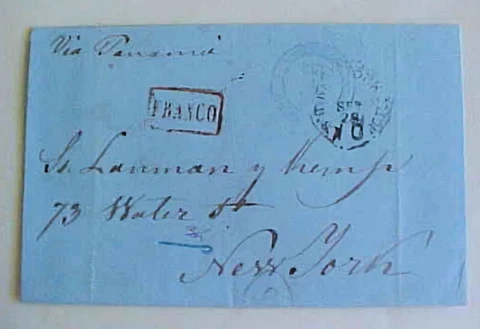 Via Panamá
FRANCO
YORK
SEP
28
10
Ss. Lanman y Kemp
73 Water St
New York